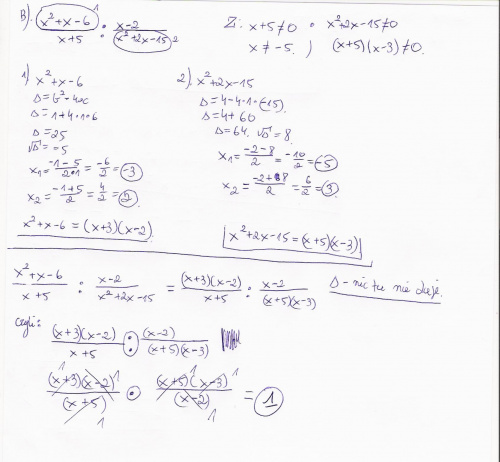 B). x²+x-6 / x+5 : x-2 / x²+2x-15
Z: x+5≠0 • x²+2x-15≠0
x≠-5, ) (x+5)(x-3)≠0.
1) x²+x-6
Δ=b²-4ac
Δ=1+4·1·6
Δ=25
√Δ=-5
x₁=-1-5/2·1=-6/2=-3
x₂=-1+5/2=4/2=2
x²+x-6=(x+3)(x-2)
2). x²+2x-15
Δ=4-4·1·(-15)
Δ=4+60
Δ=64. √Δ=8.
x₁=-2-8/2=-10/2=-5
x₂=-2+8/2=6/2=3
x²+2x-15=(x+5)(x-3)
x²+x-6 / x+5 : x-2 / x²+2x-15 = (x+3)(x-2) / x+5 : x-2 / (x+5)(x-3) Δ-nic tu nie daje.
czyli:
(x+3)(x-2) / x+5 : (x-2) / (x+5)(x-3)
(x+3)(x-2) / (x+5) • (x+5)(x-3) / (x-2) = 1